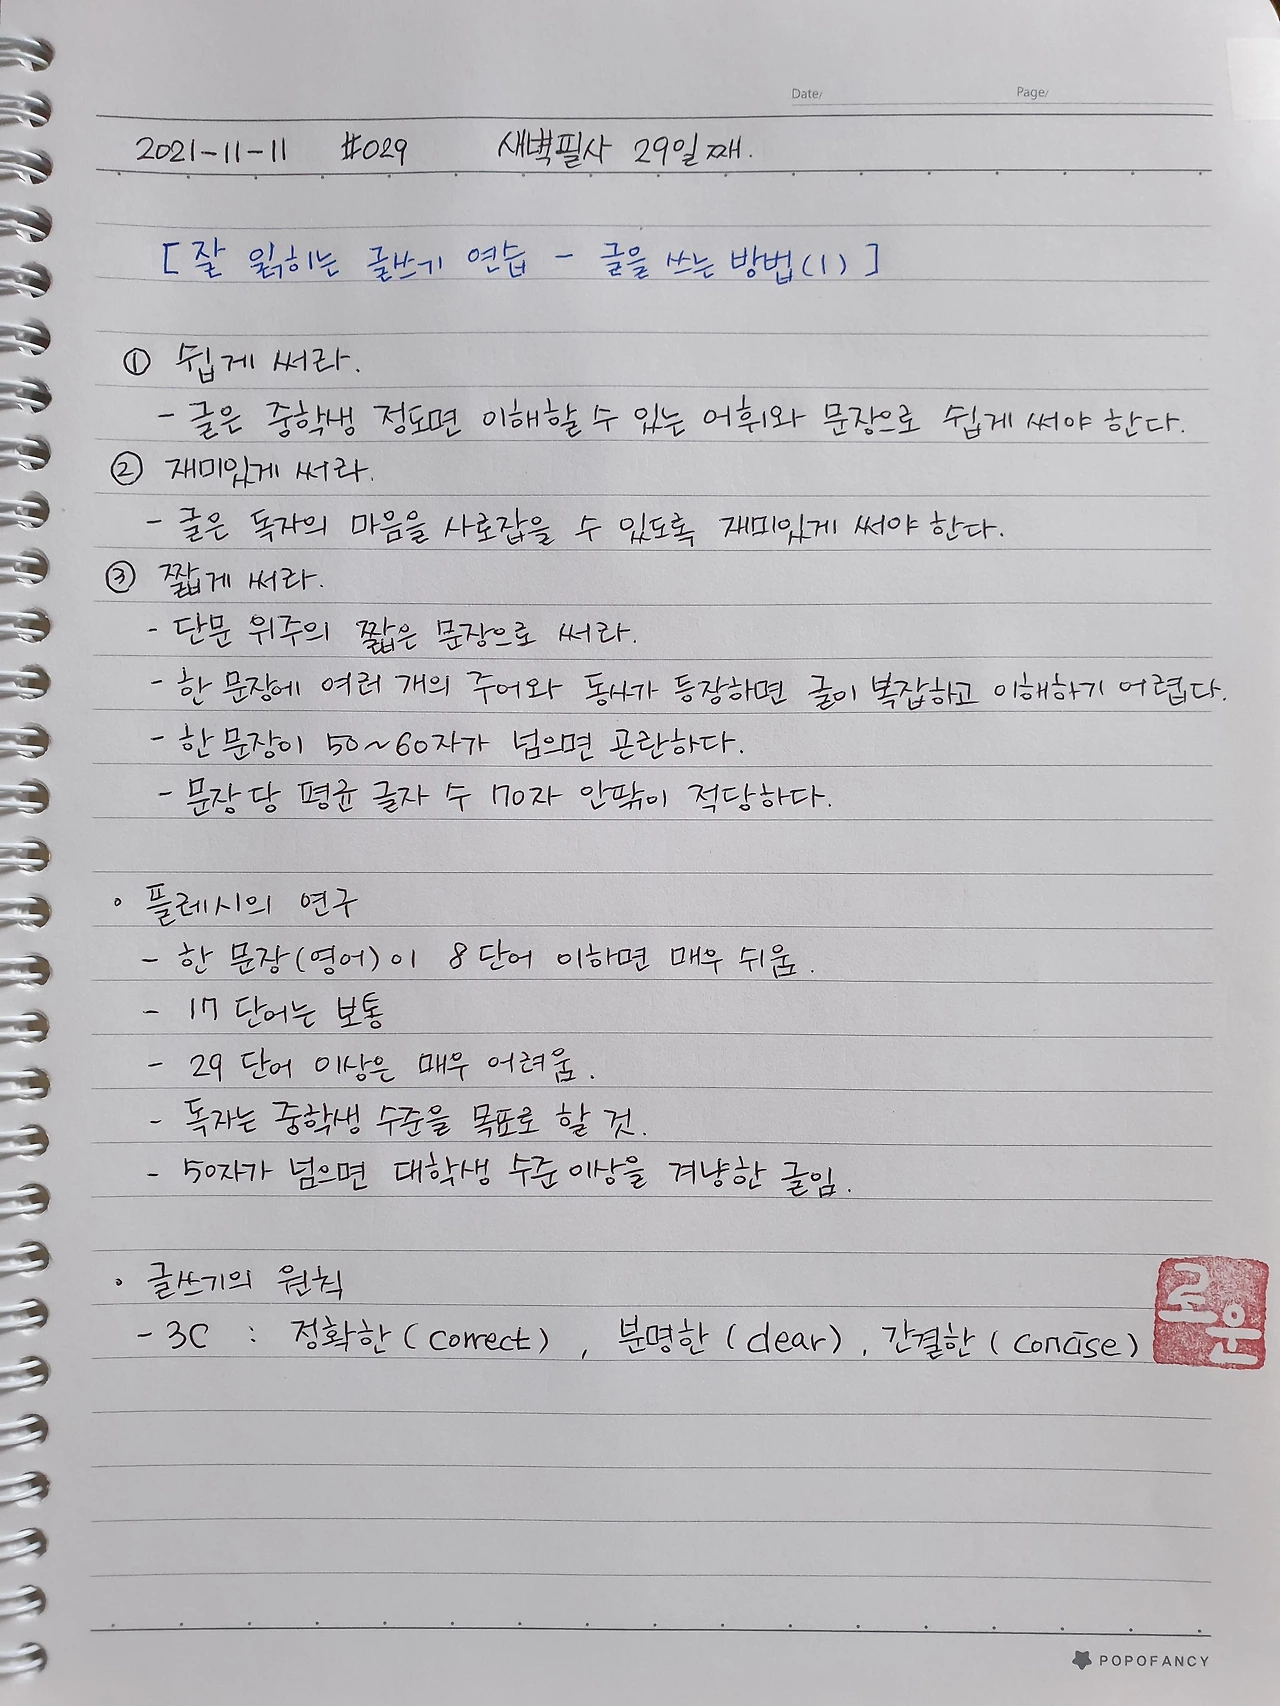 Date/ Page/
2021-11-11 #029 새벽필사 29일째.
[잘 읽히는 글쓰기 연습 - 글을 쓰는 방법(1)]
① 쉽게 써라.
- 글은 중학생 정도면 이해할 수 있는 어휘와 문장으로 쉽게 써야 한다.
② 재미있게 써라.
- 글은 독자의 마음을 사로잡을 수 있도록 재미있게 써야 한다.
③ 짧게 써라.
- 단문 위주의 짧은 문장으로 써라.
- 한 문장에 여러 개의 주어와 동사가 등장하면 글이 복잡하고 이해하기 어렵다.
- 한 문장이 50~60자가 넘으면 곤란하다.
- 문장당 평균 글자 수 70자 안팎이 적당하다.
• 플레시의 연구
- 한 문장(영어)이 8단어 이하면 매우 쉬움.
- 17 단어는 보통
- 29 단어 이상은 매우 어려움.
- 독자는 중학생 수준을 목표로 할 것.
- 50자가 넘으면 대학생 수준 이상을 겨냥한 글임.
• 글쓰기의 원칙
- 3C : 정확한(correct), 분명한(clear), 간결한(concise)
로운
POPOFANCY